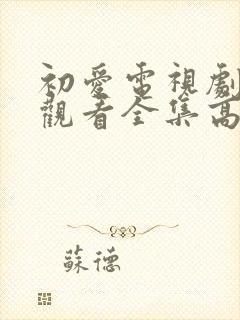 初愛電視劇
觀看全集高
蘇德